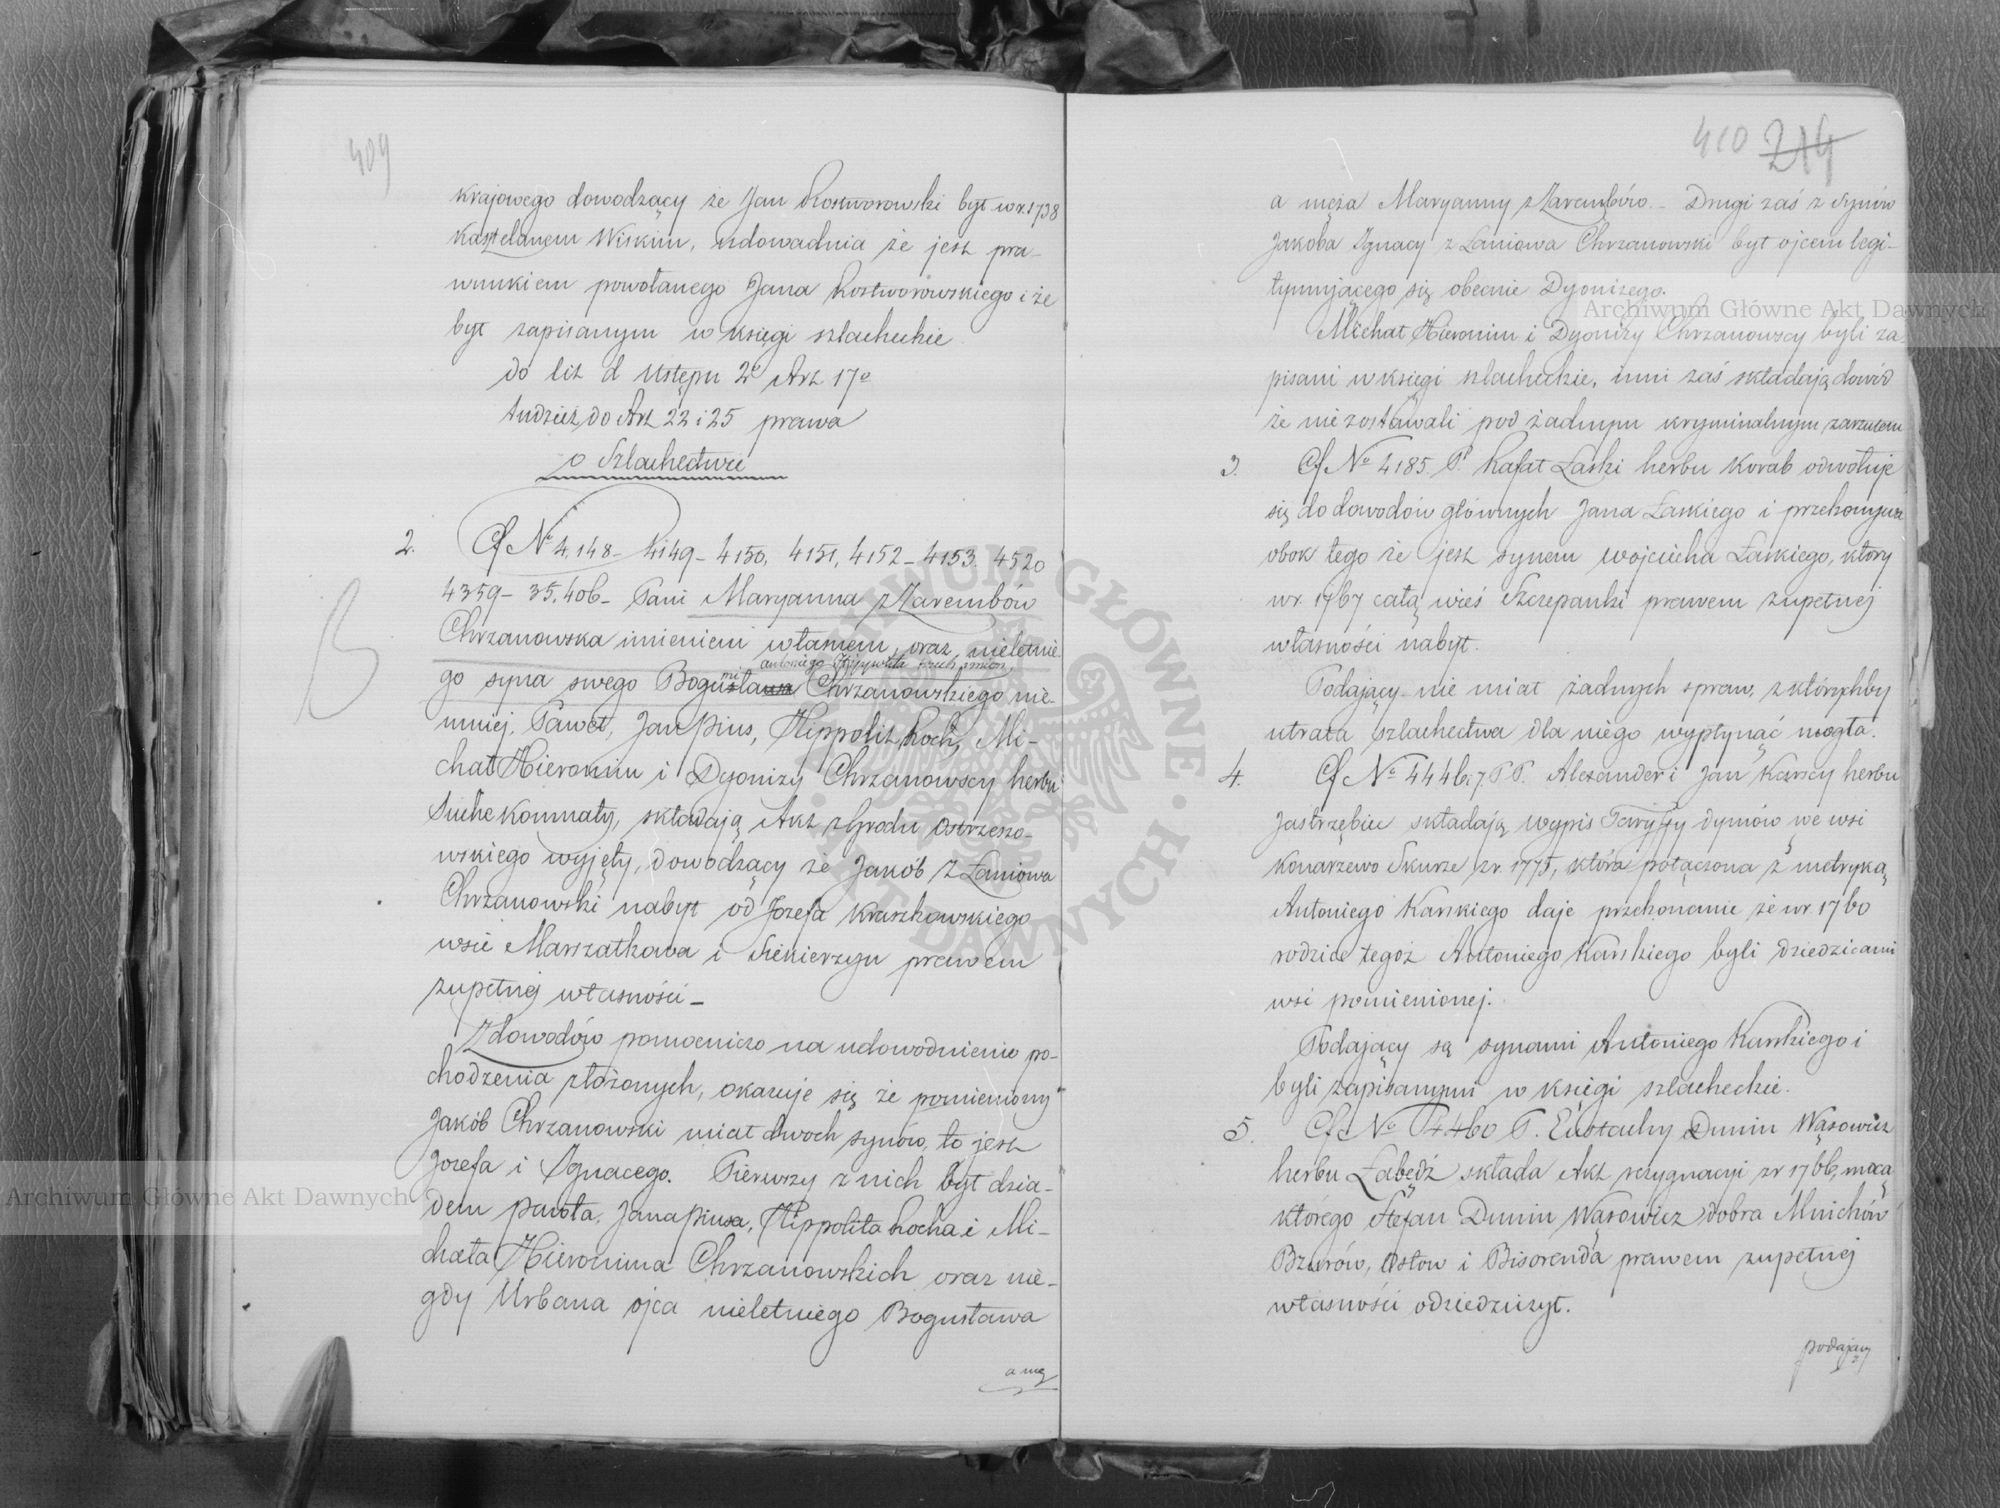 409
krajowego dowodzący że Jan Rostworowski był w r. 1738
Kasztelanem Wiskim, udowadnia że jest pra-
wnukiem powołanego Jana Rostworowskiego i że
był zapisanym w księgi szlacheckie
do lit d Ustępu 2º Art 17º
tudzież do Art 22 i 25 prawa
o Szlachectwie
2. Cf Nº 4.148 – 4149 – 4150, 4151, 4152 – 4153. 4520
4359 – 35.406 – Pani Maryanna z Zarembów
Chrzanowska imieniem własnem, oraz nieletnie-
antoniego trzech imion
go syna swego Chrzanowskiego nie-
mniej, Paweł, Jan Pius, Hippolit Roch, Mi-
chał Hieronim i Dyonizy Chrzanowscy herbu
Suche komnaty, składają Akt z Grodu Ostrzeszo-
wskiego wyjęty, dowodzący że Jakób z Łaniowa
Chrzanowski nabył od Jozefa Kraszkowskiego
wsie Marszałkowa i Siekierzyn prawem
zupełnej własności –
Z dowodów pomocniczo na udowodnienie po-
chodzenia złożonych, okazuje się że pomieniony
Jakób Chrzanowski miał dwoch synów, to jest
Jozefa i Ignacego. Pierwszy z nich był dzia-
dem Pawła, Jana Piusa, Hippolita Rocha i Mi-
chała Hieronima Chrzanowskich oraz nie-
gdy Urbana ojca nieletniego Bogusława
a mę
410 214
a męża Maryanny z Zarembów. – Drugi zaś z synów
Jakóba Ignacy z Łaniowa Chrzanowski był ojcem legi-
tymującego się obecnie Dyonizego.
Michał Hieronim i Dyonizy Chrzanowscy byli za-
pisani w księgi szlacheckie, inni zaś składają dowód
że nie zostawali pod żadnym kryminalnym zarzutem
3. Cf Nº 4185. P. Rafał Łaski herbu Korab odwołuje
się do dowodów głównych Jana Łaskiego i przekonywa
obok tego że jest synem Wojciecha Łaskiego, który
w r. 1767 całą wieś Szczepanki prawem zupełnej
własności nabył.
Podający nie miał żadnych spraw, z którychby
utrata szlachectwa dla niego wypłynąć mogła.
4. Cf Nº 4446.7 PP. Alexander i Jan Karscy herbu
Jastrzębiec składają wypis Taryffy dymów we wsi
Konarzewo Skurze z r. 1775, która połączona z metryką
Antoniego Karskiego daje przekonanie że w r. 1760
rodzice tegoż Antoniego Karskiego byli dziedzicami
wsi pomienionej.
Podający są synami Antoniego Karskiego i
byli zapisanymi w księgi szlacheckie.
5. Cf Nº 4.460 P. Eustachy Dunin Wąsowicz
herbu Łabędź składa Akt rezygnacyi z r 1766, mocą
którego Stefan Dunin Wąsowicz dobra Mnichów
Bzurów, Osłow i Bisorenda prawem zupełnej
własności odziedziczył.
podający
Archiwum Główne Akt Dawnych
Archiwum Główne Akt Dawnych
ARCHIWUM GŁÓWNE AKT DAWNYCH